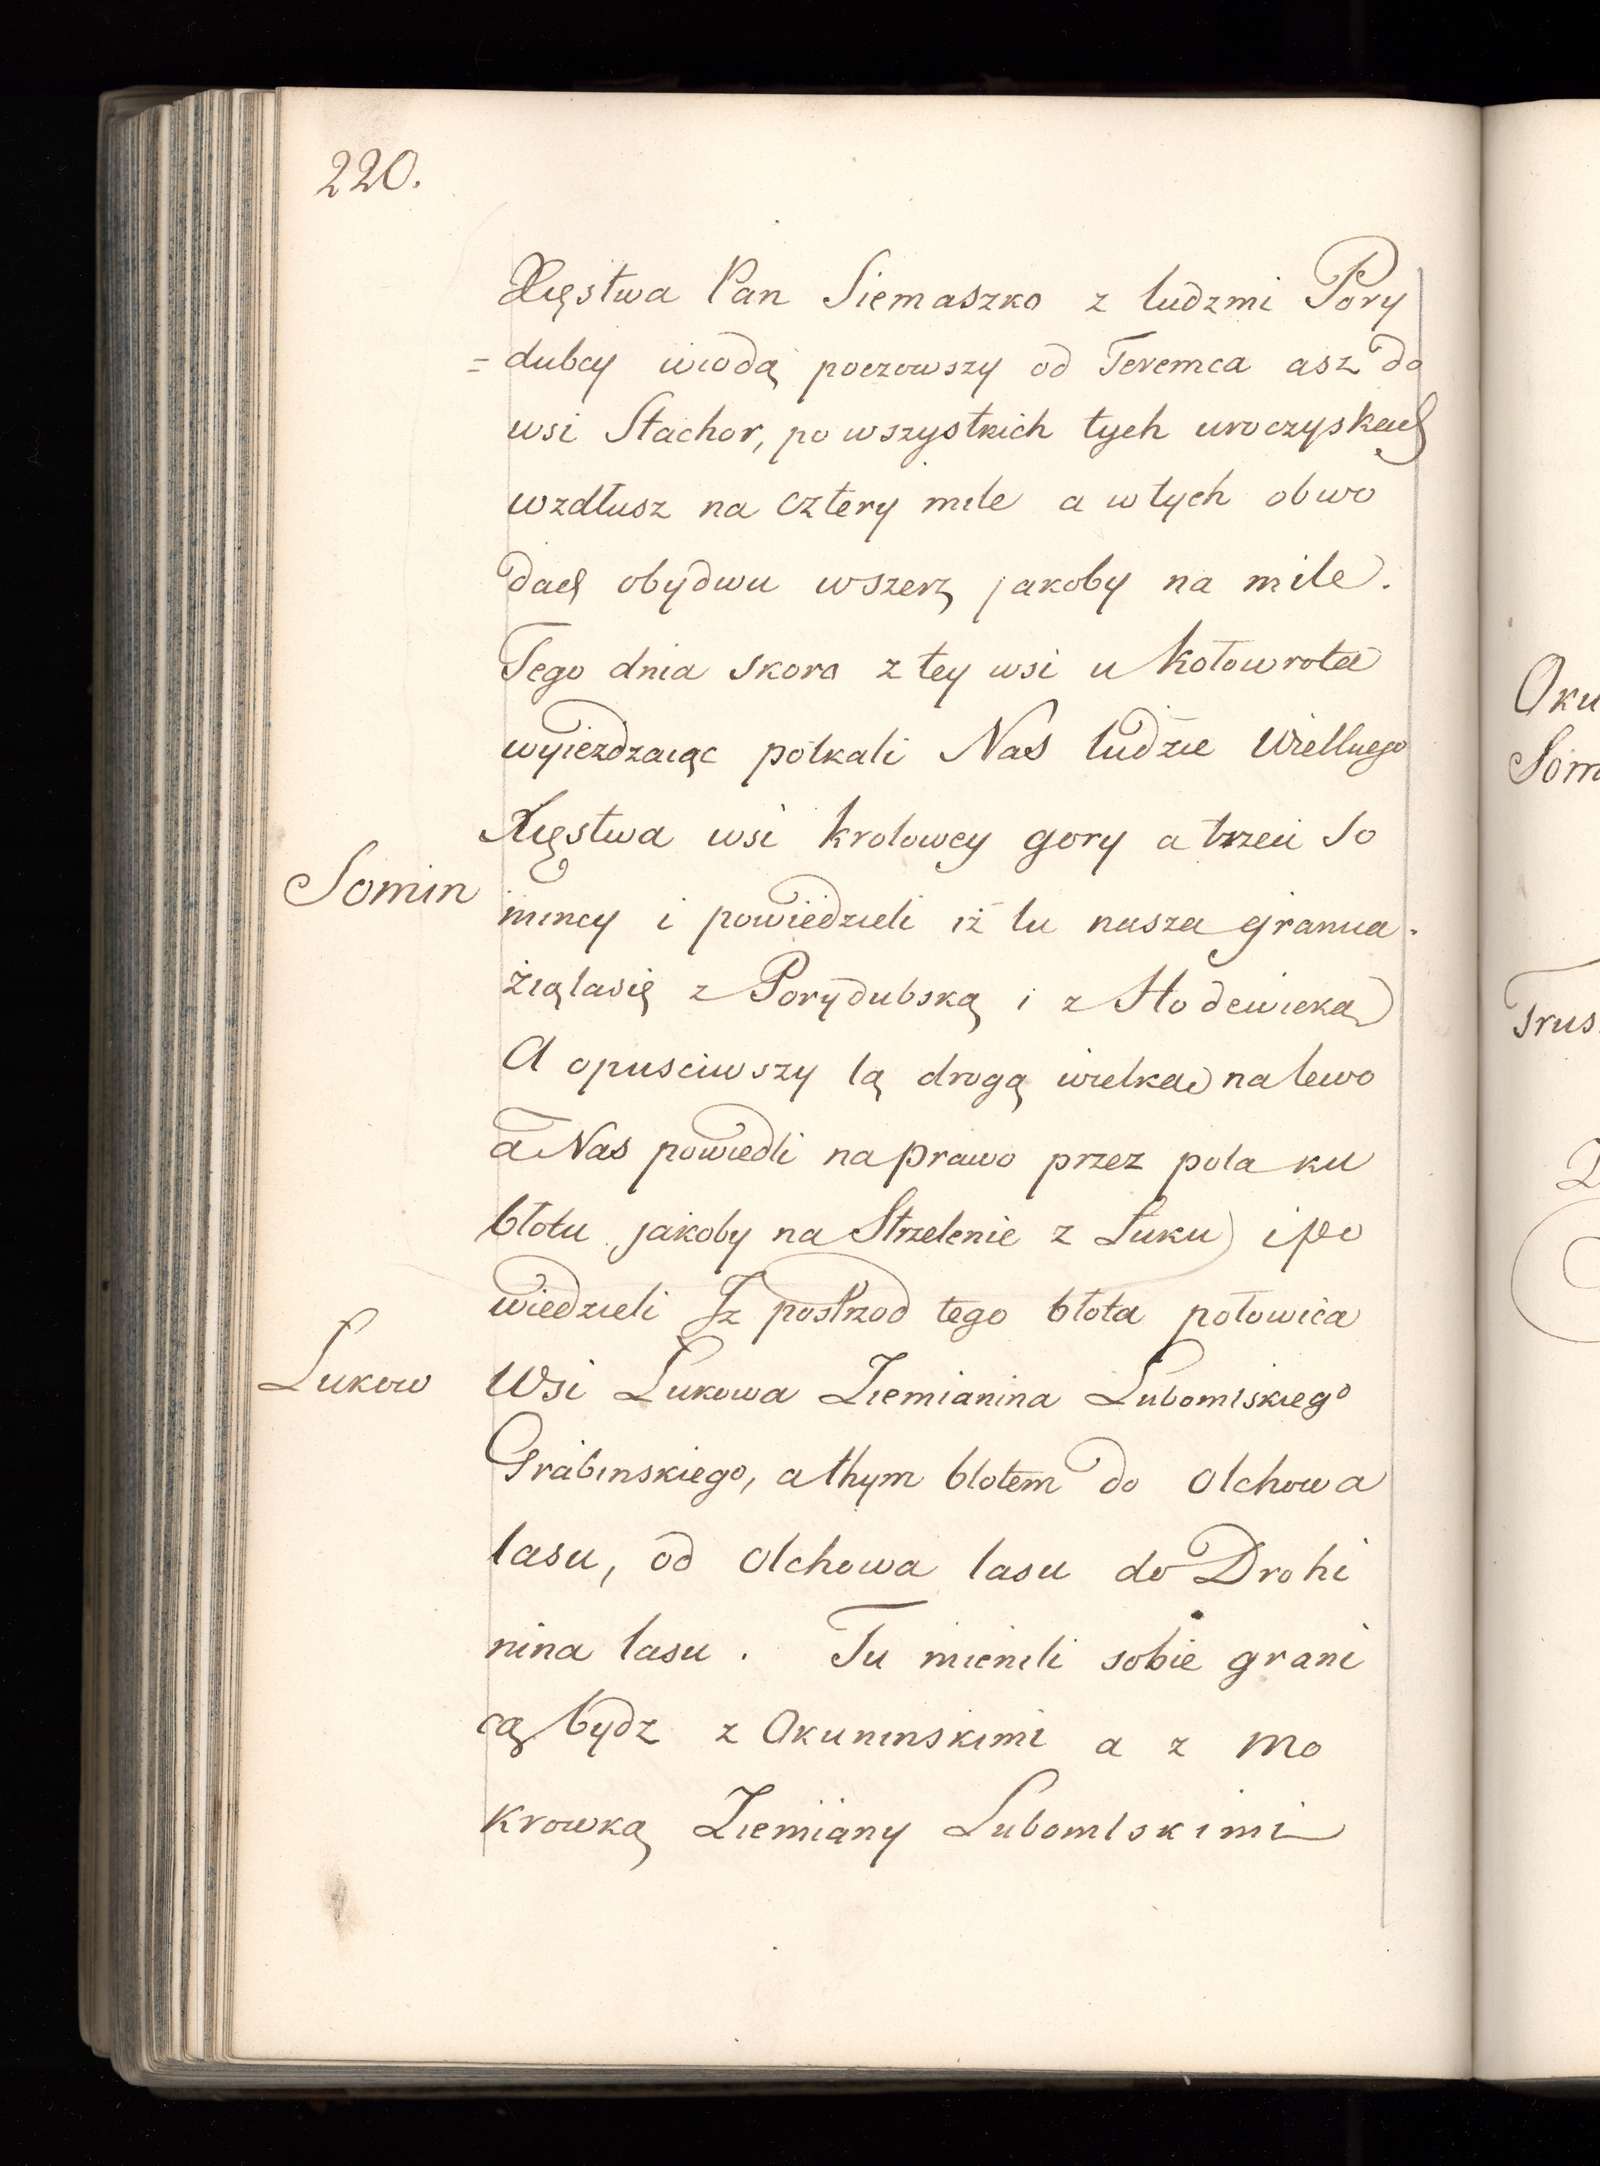 220.
Xięstwa Pan Siemaszko z ludzmi Pory
= dubcy wiodą poczowszy od Teremca asz do
wsi Stachor, po wszystkich tych uroczyskach
wzdłusz na cztery mile a w tych obwo
dach obydwu wszerz jakoby na mile.
Tego dnia skoro z tey wsi u kołowrota
wyiezdzaiąc potkali Nas ludzie Wielluego
Xięstwa wsi krolowey gory a trzeci So
Somin
mincy i powiedzieli iż tu nasza granica
żięłasię z Porydubską i z Hodewicką
A opusciwszy tą drogą wielką na lewo
a Nas powiedli na prawo przez pola ku
błotu jakoby na Strzelenie z Łuku i po
wiedzieli Iz postrzod tego błota połowica
Lukow
Wsi Lukowa Ziemianina Lubomlskiego
Grabinskiego, a thym blotem do Olchowa
lasu, od Olchowa lasu do Drohi
nina lasu. Tu mienili sobie grani
cą bydz z Okuninskimi a z Mo
krowką Ziemiany Lubomlskimi
Oku
Som
Trus